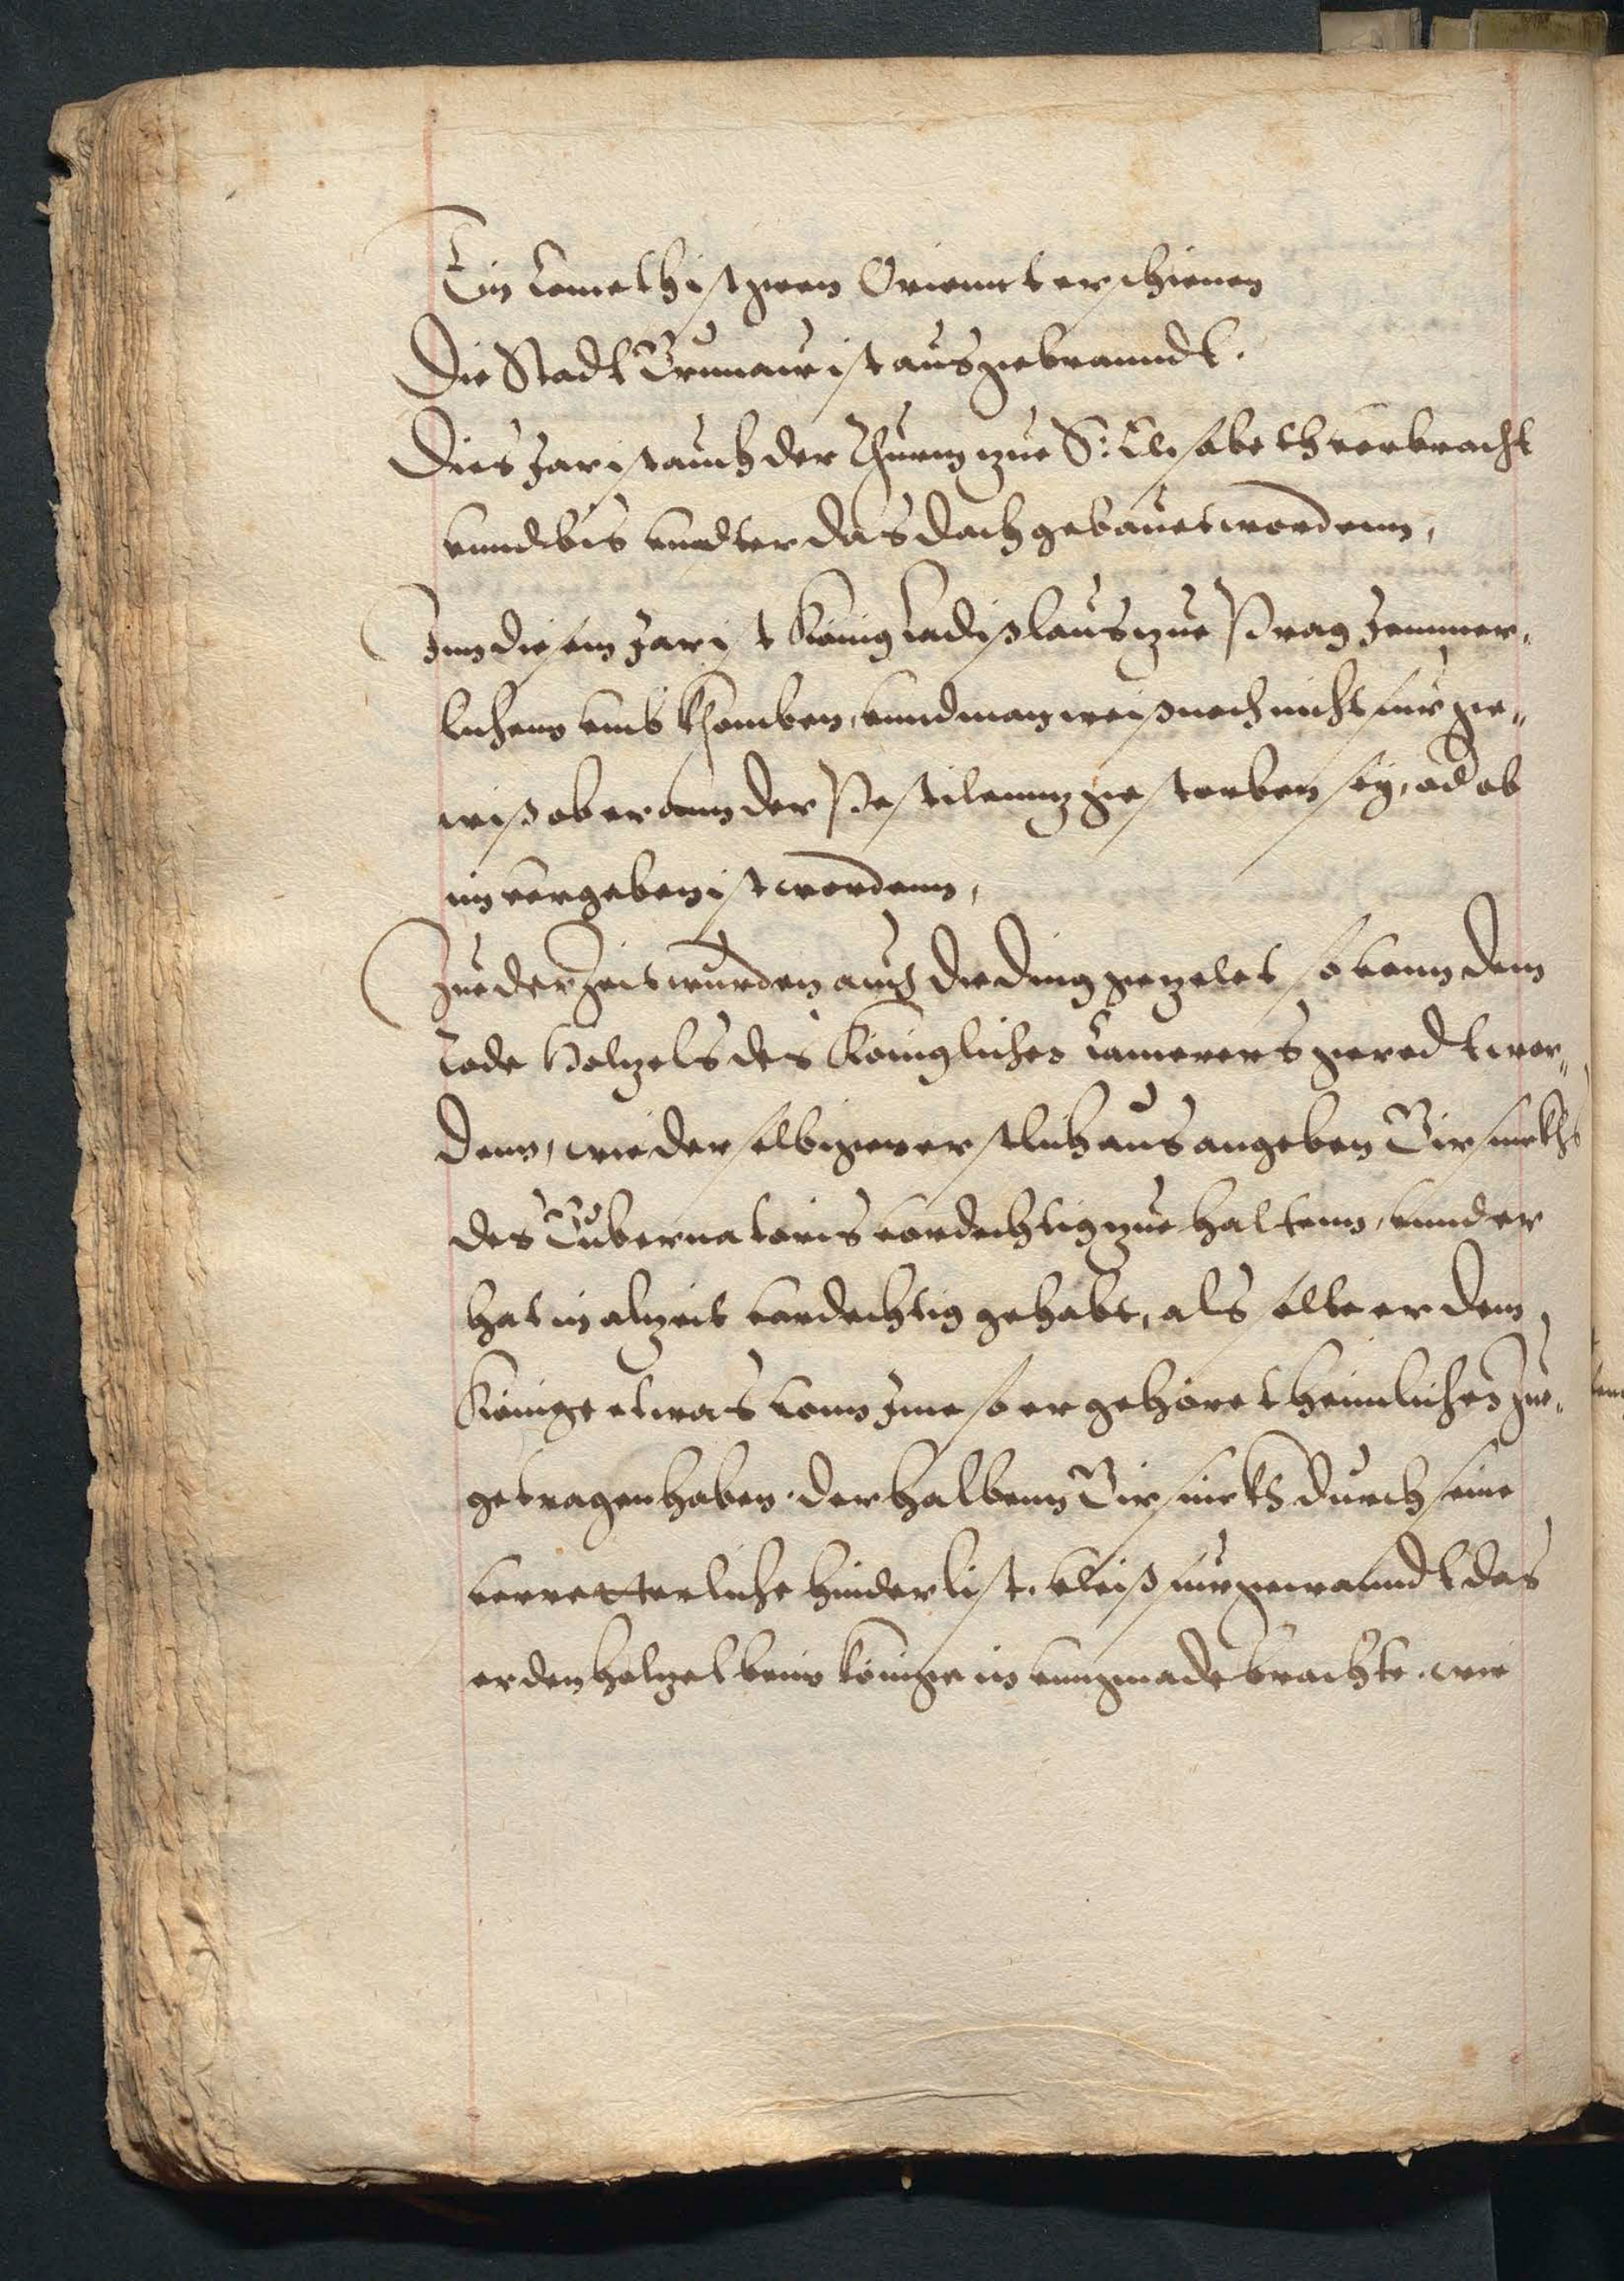 Ein Cometh ist gen Orienntt erschienen
Die Stadt Brunaw ist ausgebranndt.
Dies Jar ist auch der Thurm zue S: Elisabeth verbracht
vnnd bis vnndter das Dach gebauet wordenn,
Jnn diesem Jar ist König Ladißlaus zue Prag Jemmer-
lichenn vmb khomben, vnnd man weiß noch nicht fur ge-
wiß ob er ann der Pestilenntz gestorben sey, od ob
im vergeben ist wordenn,
Zue der Zeit wurden auch die ding gezelet so vonn dem
Tode Holtzels des Königliches Camerers geredt wor-
denn, wie derselbige erstlich aus angeben Girsickhs
des Gubernatoris verdechtig zue haltenn, vnnd er
hat in alzeit verdechtig gehabt, als solte er dem
Könige etwas vonn Jme so er gehöret heimliches zue-
getragen haben. derhalbenn Girsickh durch seine
verretterliche hinderlist. vleiß furgewanndt das
er den Holtzel beim Könige in vnngnade brachte. wie